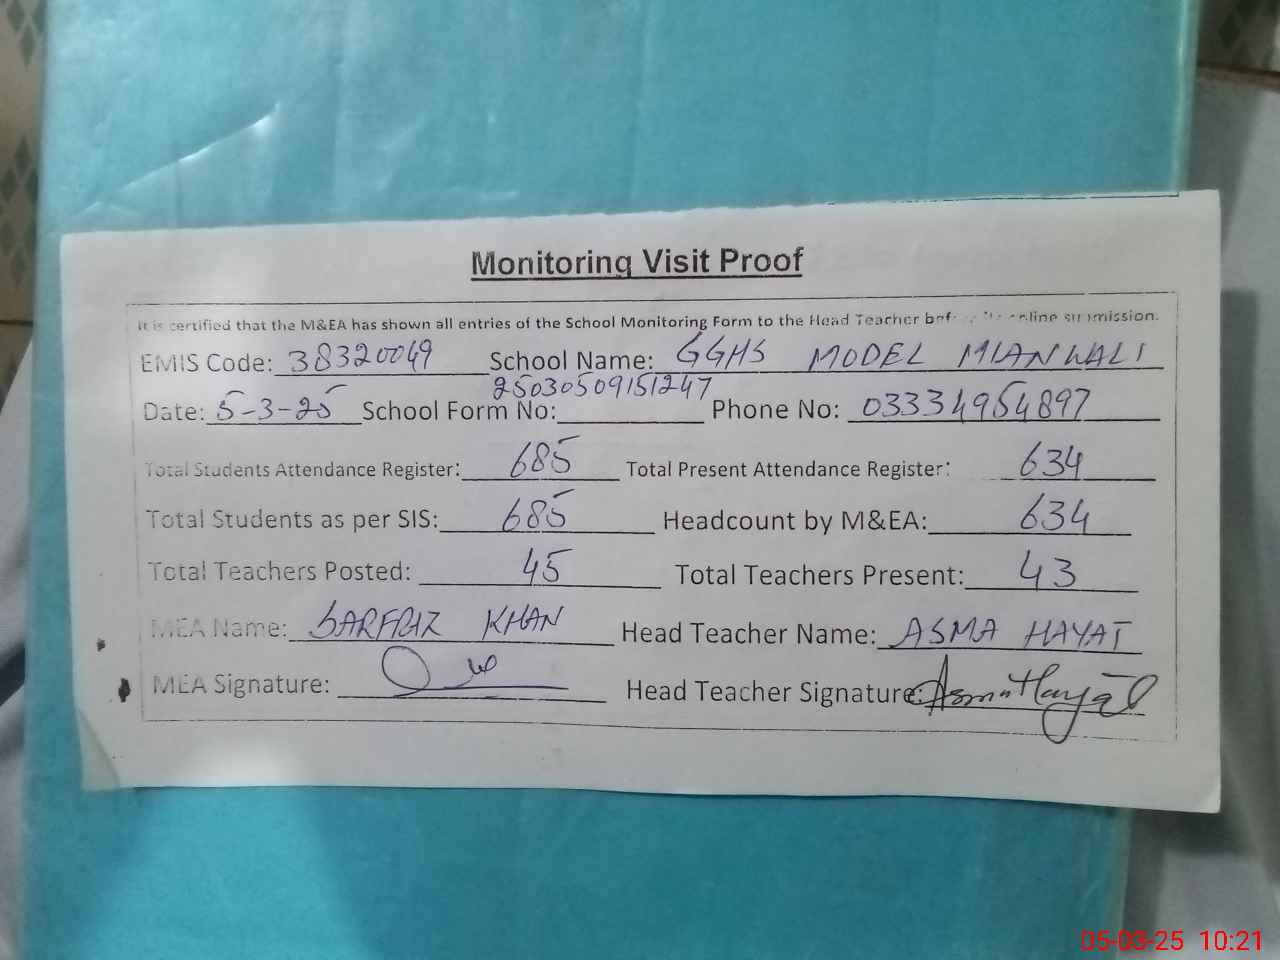 Monitoring Visit Proof
It is certified that the M&EA has shown all entries of the School Monitoring Form to the Head Teacher before its online submission.
EMIS Code: 38320049 School Name: GGHS MODEL MIANWALI
Date: 5-3-25 School Form No: 25030509151247 Phone No: 03334954897
Total Students Attendance Register: 685 Total Present Attendance Register: 634
Total Students as per SIS: 685 Headcount by M&EA: 634
Total Teachers Posted: 45 Total Teachers Present: 43
MEA Name: SARFRAZ KHAN Head Teacher Name: ASMA HAYAT
MEA Signature: Head Teacher Signature: Asma Hayat
05-03-25 10:21